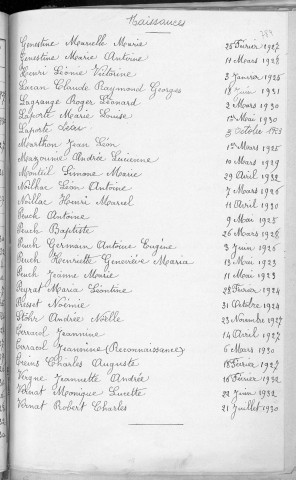 Naissances
Genestine Marcelle Marie 25 Février 1927
Genestine Marie Antoine 11 Mars 1928
Henri Léonie Victorine 3 Janvier 1926
Lucan Claude Raymond Georges 18 Juin 1931
Lagrange Roger Léonard 2 Mars 1930
Laporte Marie Louise 1er Mai 1930
Laporte 3 Octobre
Marthon Jean Léon 1er Mars 1925
Mazoume Andrée Lucienne 10 Mars 1929
Monteil Simone Marie 29 Avril 1922
Noilhac Léon Antoine 7 Mars 1926
Noillac Henri Marcel 11 Avril 1930
Peuch Antoine 9 Mai 1925
Peuch Baptiste 26 Mars 1925
Peuch Germain Antoine Eugène 3 Juin 1926
Peuch Henriette Geneviève Maria 13 Mai 1923
Peuch Jeanne Marie 11 Mai 1923
Peyrat Maria Léontine 28 Février 1924
Presset Noémie 31 Octobre 1924
Stöhr Andrée Noëlle 23 Novembre 1927
Terracol Jeannine 14 Avril 1927
Terracol Jeannine (Reconnaissance) 6 Mars 1930
Tréins Charles Auguste 18 Février 1927
Vergne Jeannette Andrée 16 Février 1932
Vernat Monique Lucette 22 Juin 1932
Vernat Robert Charles 21 Juillet 1930